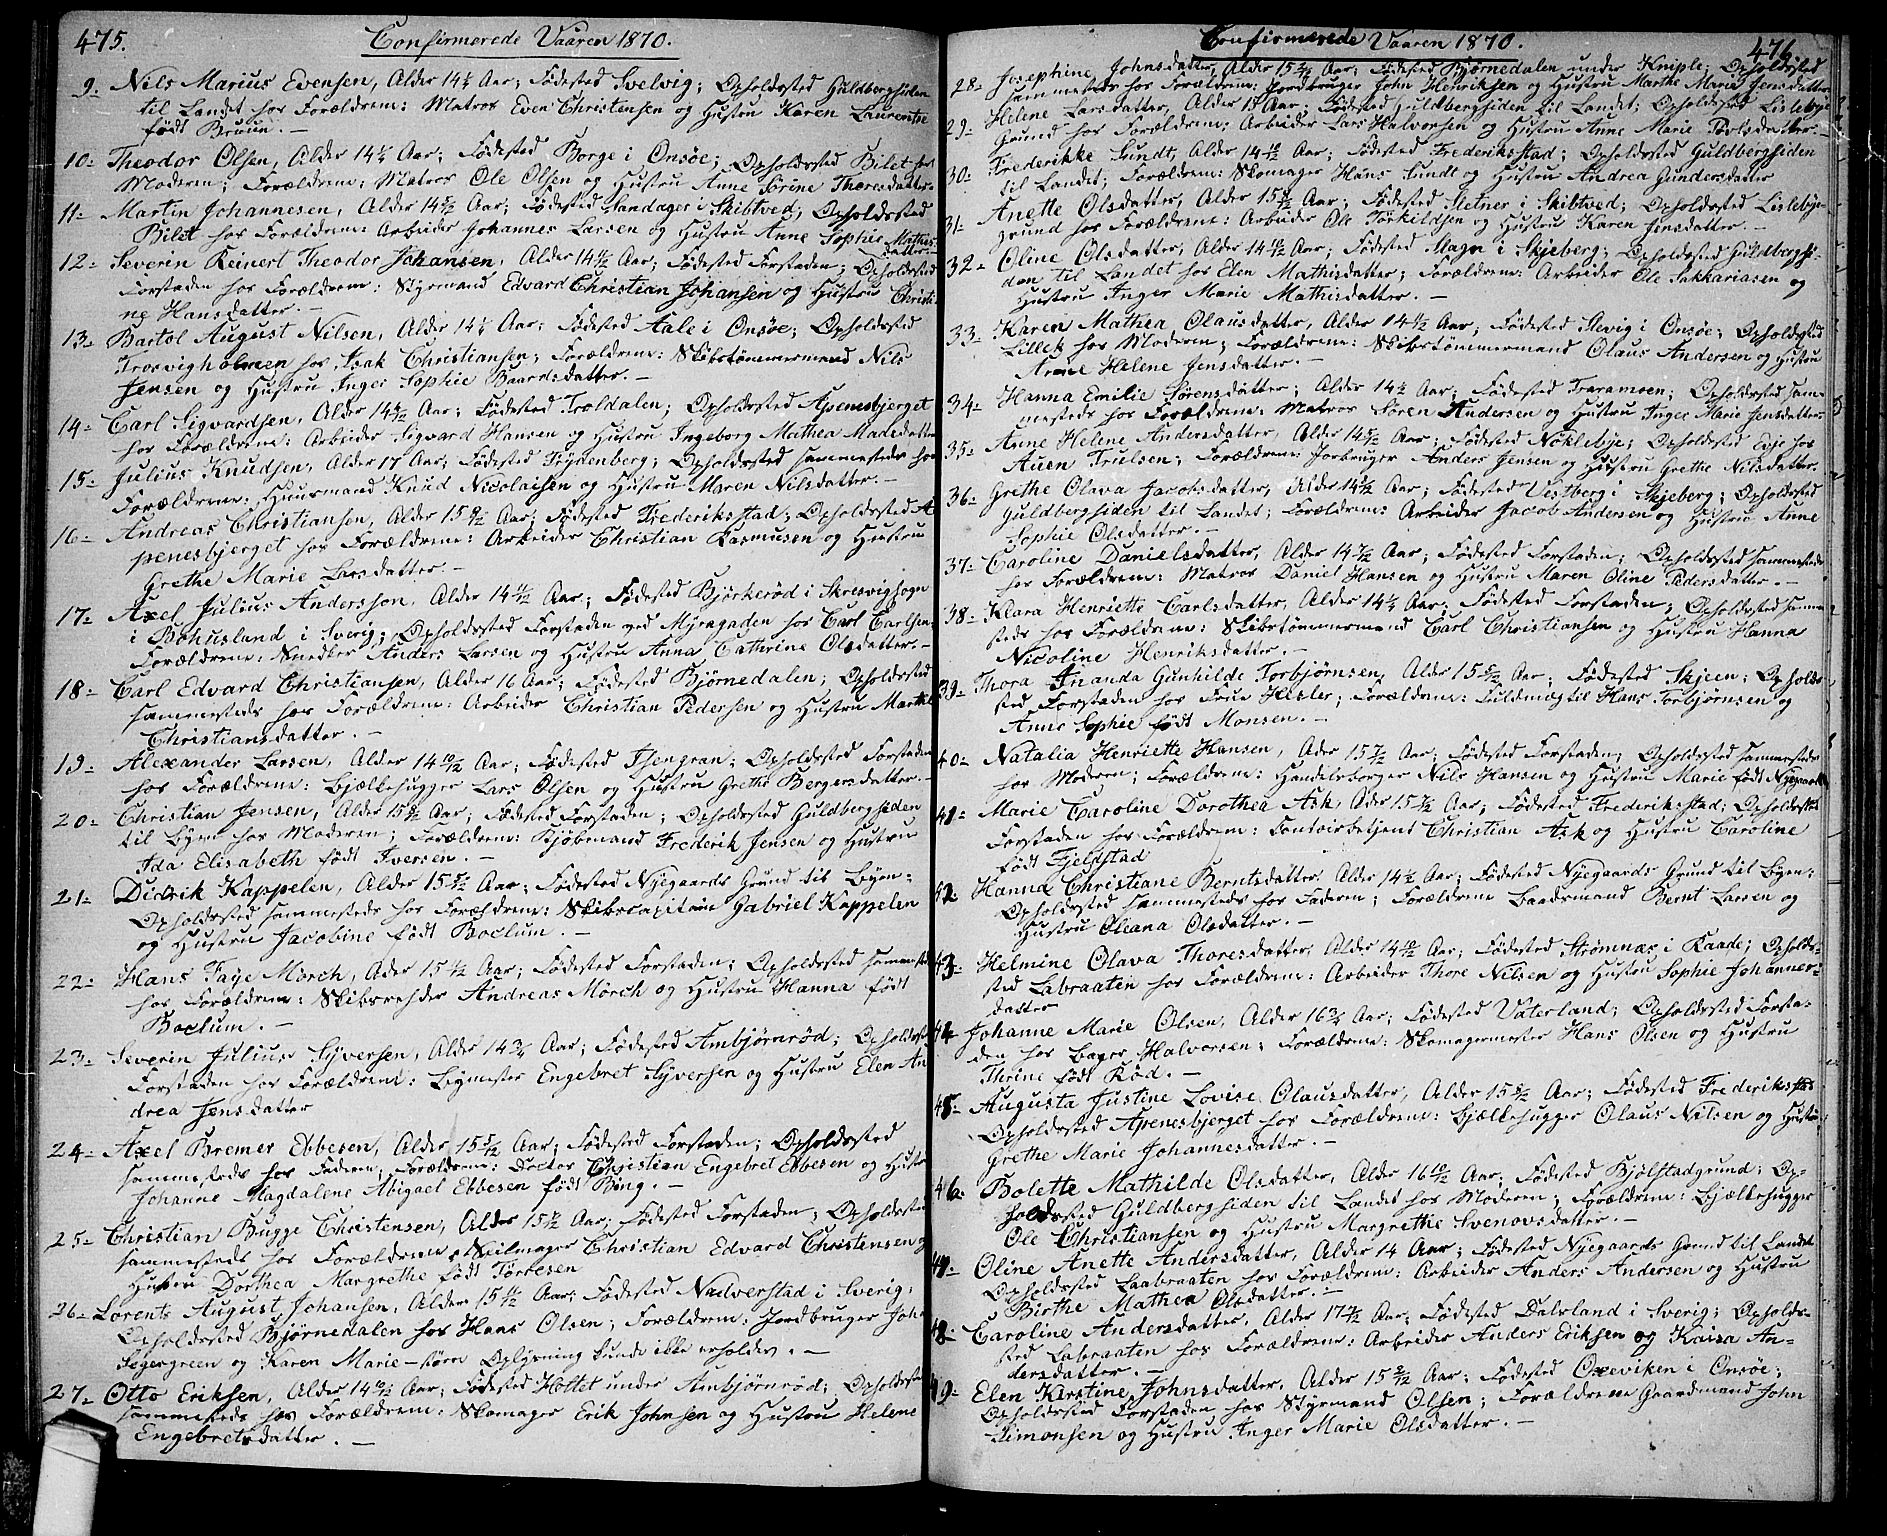 475.
Confirmerede Vaaren 1870.
9- Nils Marius Evensen, Alder 14¼ Aar; Fødested Svelvig; Opholdssted Guldbergsiden
til Landet hos Forældrene: Matros Even Christensen og Hustru Karen Laurentse
født Bruun. -
10- Theodor Olsen, Alder 14¼ Aar; Fødested Borge i Onsøe; Opholdssted Bilet hos
Moderen; Forældrene: Matros Ole Olsen og Hustru Anne Sørine Thoresdatter-
11- Martin Johannesen, Alder 14 Aar; Fødested Sandager i Skibtved; Opholdssted
Bilet hos Forældrene: Arbeider Johannes Larsen og Hustru Anne Sophie Mathis-
datter-
12- Severin Reinert Theodor Johansen, Alder 14½ Aar; Fødested Forstaden; Opholdssted
Forstaden hos Forældrene: Styrmand Edvard Christian Johansen og Hustru Christi-
ne Hansdatter. -
13- Bartol August Nilsen, Alder 14¼ Aar; Fødested Aale i Onsøe; Opholdssted
Trosvigholmen hos Isak Christiansen; Forældrene: Skibstømmermand Nils
Jensen og Hustru Inger Sophie Baardsdatter. -
14- Carl Sigvardsen, Alder 14 Aar; Fødested Troldalen; Opholdssted Apenesbjerget
hos Forældrene: Arbeider Sigvard Hansen og Hustru Ingeborg Mathea Madsdatter
15- Julius Knudsen, Alder 17 Aar; Fødested Frydenberg; Opholdssted sammesteds hos
Forældrene: Huusmand Knud Nicolaisen og Hustru Maren Nilsdatter. -
16- Andreas Christiansen, Alder 15 Aar; Fødested Frederiksstad; Opholdssted A-
penesbjerget hos Forældrene: Arbeider Christian Rasmusen og Hustru
Grethe Marie Larsdatter. -
17- Axel Julius Andersson, Alder 14 Aar; Fødested Björkeröd i Skresvigsogn
i Bohusland i Sverig; Opholdssted Forstaden ved Myragaden hos Carl Carlsen.
Forældrene: Snedker Anders Larsen og Hustru Anna Cathrine Olsdatter. -
18- Carl Edvard Christiansen, Alder 16 Aar; Fødested Bjørnedalen; Opholdssted
sammesteds hos Forældrene: Arbeider Christian Pedersen og Hustru Marthe
Christiansdatter. -
19- Alexander Larsen, Alder 14 10/12 Aar; Fødested Thengran; Opholdssted Forstaden
hos Forældrene: Bjælkehugger Lars Olsen og Hustru Grethe Bergersdatter. -
20- Christian Jensen, Alder 15 Aar; Fødested Forstaden; Opholdssted Guldbergsiden
til Byen hos Moderen; Forældrene: Kjøbmand Frederik Jensen og Hustru
Ida Elisabeth født Iversen. -
21- Didrik Kappelen, Alder 15 Aar; Fødested Nyegaards Grund til Byen;
Opholdssted sammesteds hos Forældrene: Skibscapitain Gabriel Kappelen
og Hustru Jacobine født Boclum. -
22- Hans Faye Mørch, Alder 15 Aar; Fødested Forstaden; Opholdssted sammesteds
hos Forældrene: Skibsrehder Andreas Mörch og Hustru Hanna født
Boclum. -
23- Severin Julius Syversen, Alder 14¾ Aar; Fødested Ambjørnrød; Opholdssted
Forstaden hos Forældrene: Bygmester Engebret Syversen og Hustru Elen An
drea Jensdatter
24- Axel Bremer Ebbesen, Alder 15 Aar; Fødested Forstaden; Opholdssted
sammesteds hos Faderen; Forældrene: Doctor Christian Engebret Ebbesen og Hustru
Johanne Magdalene Abigael Ebbesen født Bing. -
25- Christian Bugge Christensen, Alder 15 Aar; Fødested Forstaden; Opholdssted
sammesteds hos Forældrene: Seilmager Christian Edvard Christensen og
Hustru Dorthea Margrethe født Tørresen
26- Lorents August Johansen, Alder 15 Aar; Fødested Naverstad i Sverig;
Opholdssted Bjørnedalen hos Hans Olsen; Forældrene: Jordbruger Joha
Segergreen og Karen Marie - større Oplysning kunde ikke erholdes. -
27- Otto Eriksen, Alder 14 Aar; Fødested Hottet under Ambjørnrød; Opholdssted
sammesteds hos Forældrene: Skomager Erik Johnsen og Hustru Helene
Engebretsdatter. -
Confirmerede Vaaren 1870.
476.
28- Josephine Johnsdatter, Alder 15 Aar; Fødested Bjørnedalen under Kniple; Opholdssted
sammesteds hos Forældrene: Jordbruger John Henriksen og Hustru Marthe Maria Jensdatter
29- Helene Larsdatter, Alder 15 Aar; Fødested Guldbergsiden til Landet; Opholdssted Lislebye
Grund hos Forældrene: Arbeider Lars Halvorsen og Hustru Anne Marie Povlsdatter. -
30- Frederikke Sundt, Alder 14 10/12 Aar; Fødested Frederiksstad; Opholdssted Guldbergsiden
til Landet; Forældrene: Skomager Hans Sundt og Hustru Andrea Gundersdatter
31- Anette Olsdatter, Alder 15 Aar; Fødested Sletner i Skibtved; Opholdssted Lislebye-
grund hos Forældrene: Arbeider Ole Torkildsen og Hustru Karen Jensdatter. -
32- Oline Olsdatter, Alder 14 Aar; Fødested Magn i Skjeberg; Opholdssted Guldbergsi-
den til Landet hos Elen Mathisdatter; Forældrene: Arbeider Ole Sakkariasen og
Hustru Inger Marie Mathisdatter. -
33- Karen Mathea Olausdatter, Alder 14½ Aar; Fødested Slevig i Onsøe; Opholdssted
Lillek hos Moderen; Forældrene: Skibstømmermand Olaus Andersen og Hustru
Anne Helene Jensdatter. -
34- Hanna Emilie Sørensdatter; Alder 14½ Aar; Fødested Traramoen; Opholdssted sam-
mesteds hos Forældrene: Matros Søren Andersen og Hustru Inger Marie Jensdatter
35- Anne Helene Andersdatter, Alder 14 Aar; Fødested Nøklebye; Opholdssted Evje hos
Auen Trulsen; Forældrene: Jorbruger Anders Jensen og Hustru Grethe Nilsdatter.
36- Grethe Olava Jacobsdatter, Alder 14 Aar; Fødested Vestberg i Skjeberg; Opholdssted
Guldbergsiden til Landet; Forældrene: Arbeider Jacob Andersen og Hustru Anne
Sophie Olsdatter. -
37- Caroline Danielsdatter, Alder 14 Aar; Fødested Forstaden; Opholdssted sammesteds
hos Forældrene: Matros Daniel Hansen og Hustru Maren Oline Pedersdatter. -
38- Klara Henriette Carlsdatter, Alder 14¼ Aar; Fødested Forstaden; Opholdssted samme
steds hos Forældrene: Skibstømmermand Carl Christiansen og Hustru Hanna
Nicoline Henriksdatter. -
39- Thora Ananda Gunhilde Torbjørnsen, Alder 15 Aar; Fødested Skjeen; Opholds-
sted Forstaden hos Frue Heslers; Forældrene: Fuldmægtig Hans Torbjørnsen og
Anne Sophie født Monsen. -
40- Natalia Henriette Hansen, Alder 15 Aar; Fødested Forstaden; Opholdssted sammesteds
hos Moderen; Forældrene: Handelsborger Nils Hansen og Hustru Marie født Nygaard
41- Marie Caroline Dorothea Ask, Alder 15 Aar; Fødested Frederiksstad; Opholdssted
Forstaden hos Forældrene: Contoirbetjent Christian Ask og Hustru Caroline
født Fjeldstad
42- Hanna Christiane Berntsdatter, Alder 14½ Aar; Fødested Nyegaards Grund til Byen;
Opholdssted sammesteds hos Faderen; Forældrene Baadsmand Bernt Larsen og
Hustru Oleana Olsdatter. -
43- Helmine Olava Thoresdatter, Alder 14 10/12 Aar; Fødested Strømnæs i Raade; Opholds-
sted Labraaten hos Forældrene: Arbeider Thore Nilsen og Hustru Sophie Johannes-
datter
44- Johanne Marie Olsen, Alder 16¾ Aar; Fødested Vaterland; Opholdssted Forsta-
den hos Bager Halvorsen; Forældrene: Skomagermester Hans Olsen og Hustru
Thrine født Rød. -
45- Augusta Justine Lovise Olausdatter, Alder 15 Aar; Fødested Frederiksstad
Opholdssted Apenesbjerget hos Forældrene: Bjælkehugger Olaus Nilsen og Hustru
Grethe Marie Johannesdatter. -
46- Bolette Mathilde Olsdatter, Alder 16 10/12 Aar; Fødested Kjølstadgrund; Op-
holdssted Guldbergsiden til Landet hos Moderen; Forældrene: Bjælkehugger
Ole Christiansen og Hustru Margrethe Svenovsdatter. -
47- Oline Anette Andersdatter, Alder 14 Aar; Fødested Nyegaards Grund til Landet
Opholdssted Laabraaten hos Forældrene: Arbeider Anders Andersen og Hustru
Birthe Mathea Olsdatter. -
48- Caroline Andersdatter, Alder 17 Aar; Fødested Dalsland i Sverig; Opholds-
sted Labraaten hos Forældrene: Arbeider Anders Eriksen og Kaisa An-
dersdatter. -
49- Elen Kirstine Johnsdatter, Alder 15 Aar; Fødested Oxeviken i Onsøe;
Opholdssted Forstaden hos Styrmand Olsen; Forældrene Gaardmand John
Simonsen og Hustru Inger Marie Olsdatter. -